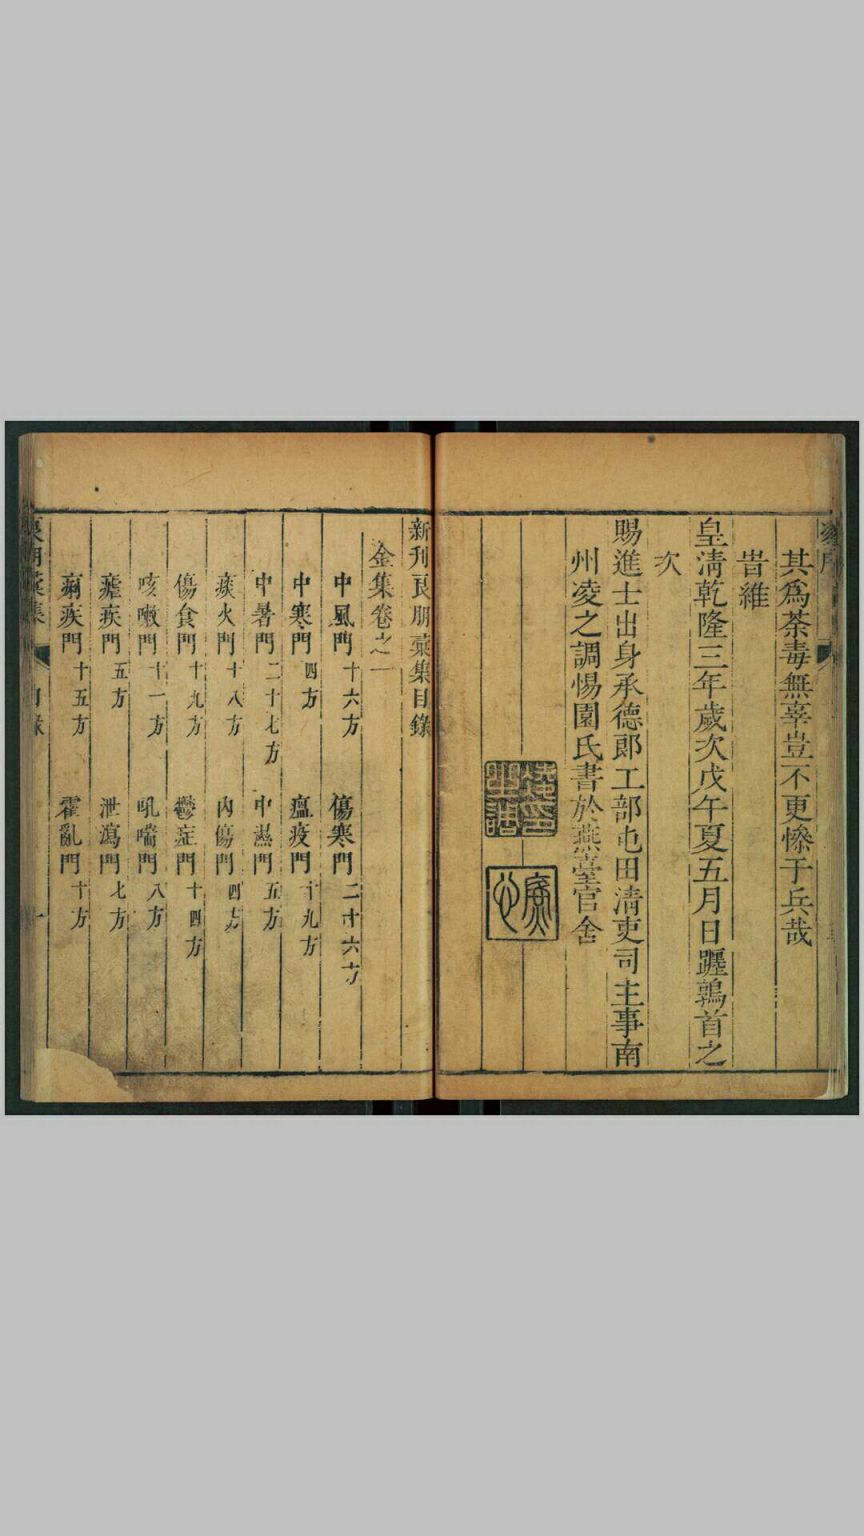 其為荼毒無辜豈不更慘于兵哉
旹維
皇清乾隆三年歲次戊午夏五月日躔鶉首之
次
賜進士出身承德郎工部屯田清吏司主事南
州凌之調惕園氏書於燕臺官舍
新刊良朋彙集目錄
金集卷之一
中風門十六方 傷寒門二十六方
中寒門四方 瘟疫門十九方
中暑門二十七方 中濕門五方
痰火門十八方 內傷門四方
傷食門十九方 鬱症門十四方
咳嗽門十一方 吼喘門八方
瘧疾門五方 泄瀉門七方
痢疾門十五方 霍亂門十方